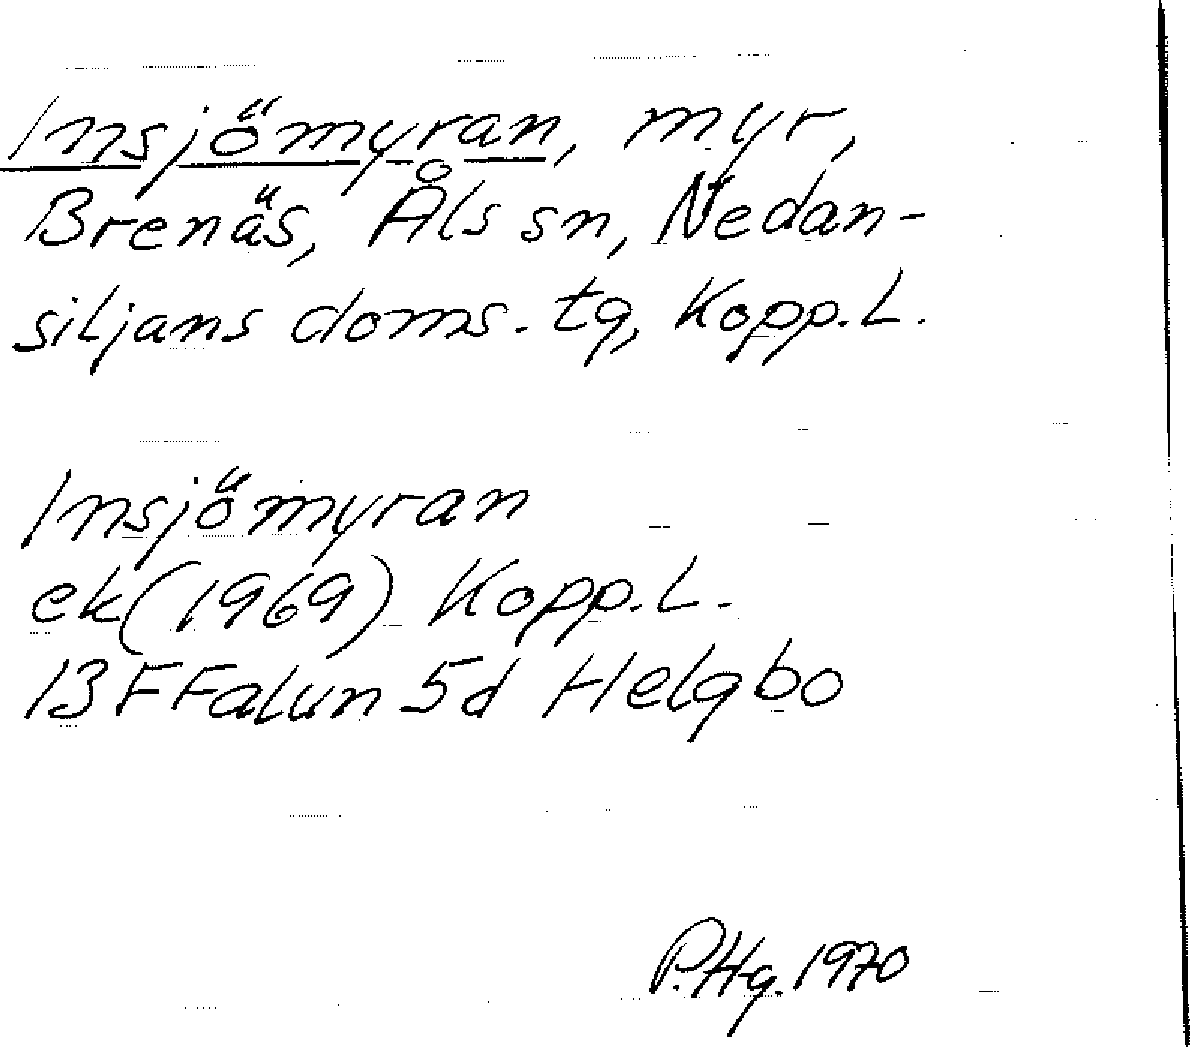 Insjömyran, myr,
Brenäs, Åls sn, Nedan-
siljans doms. tg, Kopp.L.
Insjömyran
ek (1969) Kopp.L.
13FFalun 5d Helgbo
P.Hg. 1970